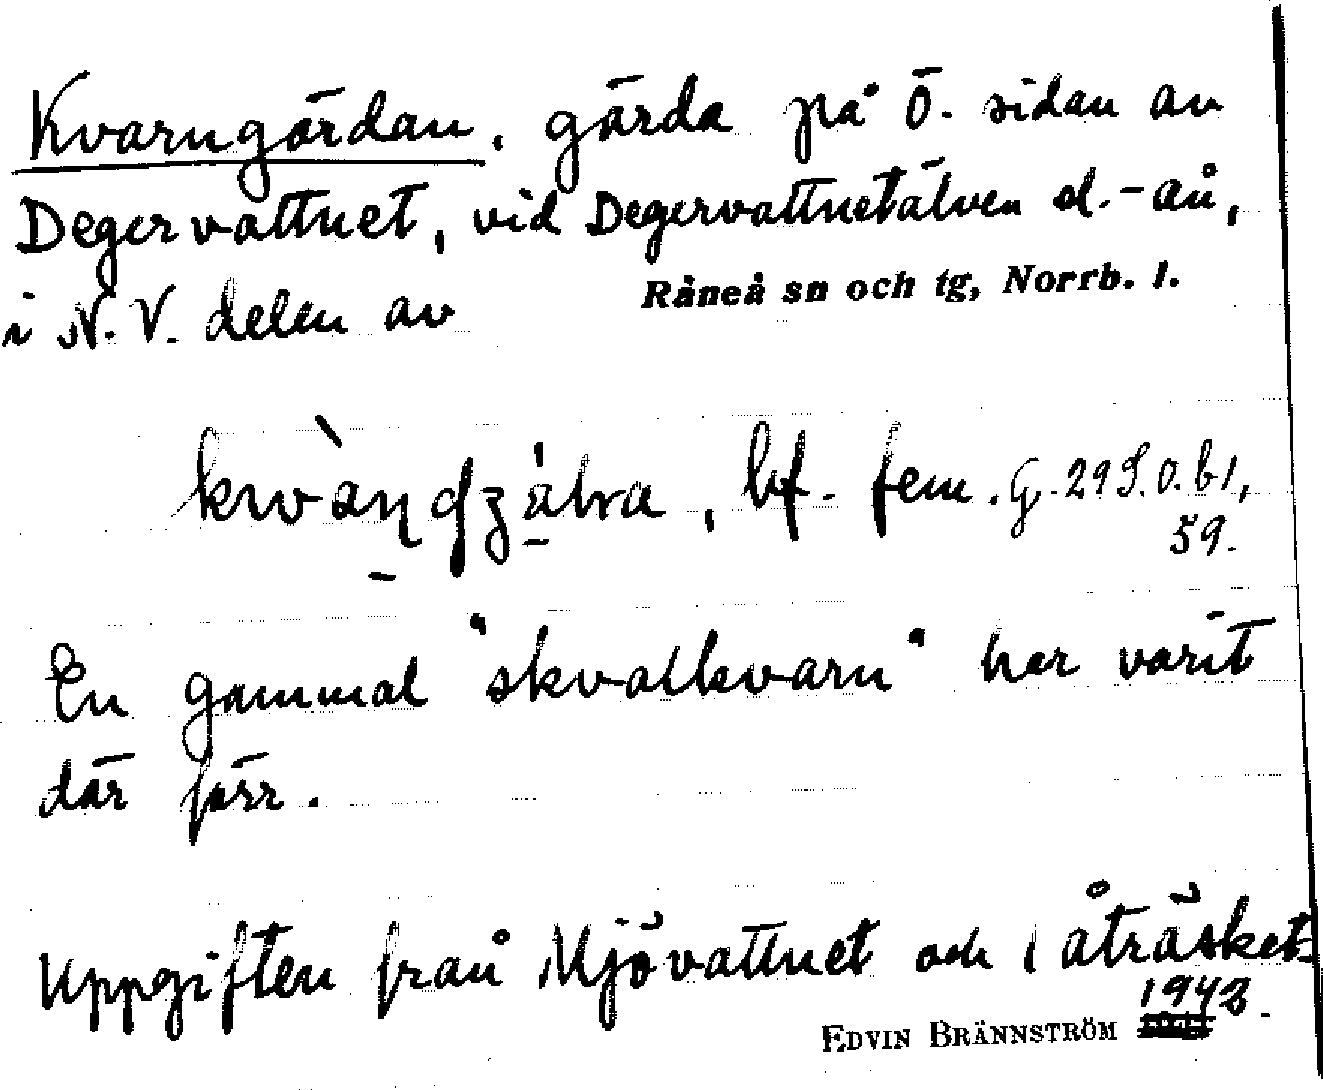 Kvarngärdan, gärda på Ö. sidan av
Degervattnet, vid Degervattnetälven el. -ån,
i N. V. delen av Råneå sn och tg, Norrb. l.
bf. fem. G. 29 S. o. b1,
59.
En gammal "skvalkvarn" har varit
där förr.
Uppgiften från Mjövattnet och Låträsket
EDVIN BRÄNNSTRÖM 1943.